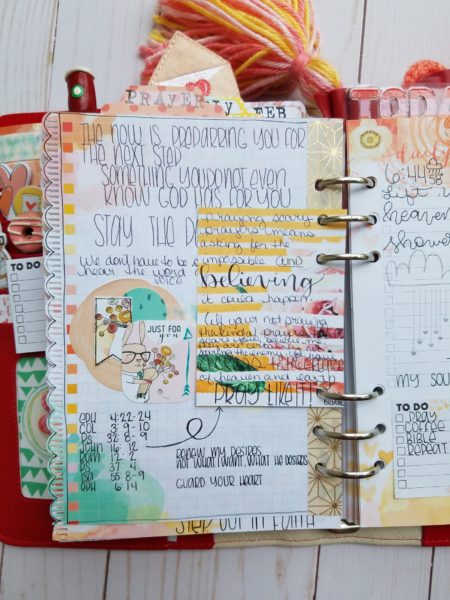 PRAYERFULLY FEB
THE NOW IS PREPARRING YOU FOR
THE NEXT STEP
SOMETHING YOU DO NOT EVEN
KNOW GOD HAS FOR YOU
STAY THE
We don't have to be
hear the word
VOICE
praying scary
prayers means
asking for the
impossible AND
Believing
it could happen.
If your not praying
the kind of prayers
scare you, believe me
they are certainly not
the enemy
of heaven and earth
PRAY LIKE IT!
JUST FOR
you
EPH 4:22-24
COL 3:9-10
PS 32:8-9
JOHN 16:12
ROM 12:2
PS 37:4
ISA 55 8-9
EPH 6 14
RENEW MY DESIRES
NOT WHAT I WANT, WHAT HE DESIRES
GUARD YOUR HEART
STEP OUT IN FAITH
TO DO
6:44
Lift
heaven
shower
MY SOU
TO DO
PRAY
COFFEE
BIBLE
REPEAT